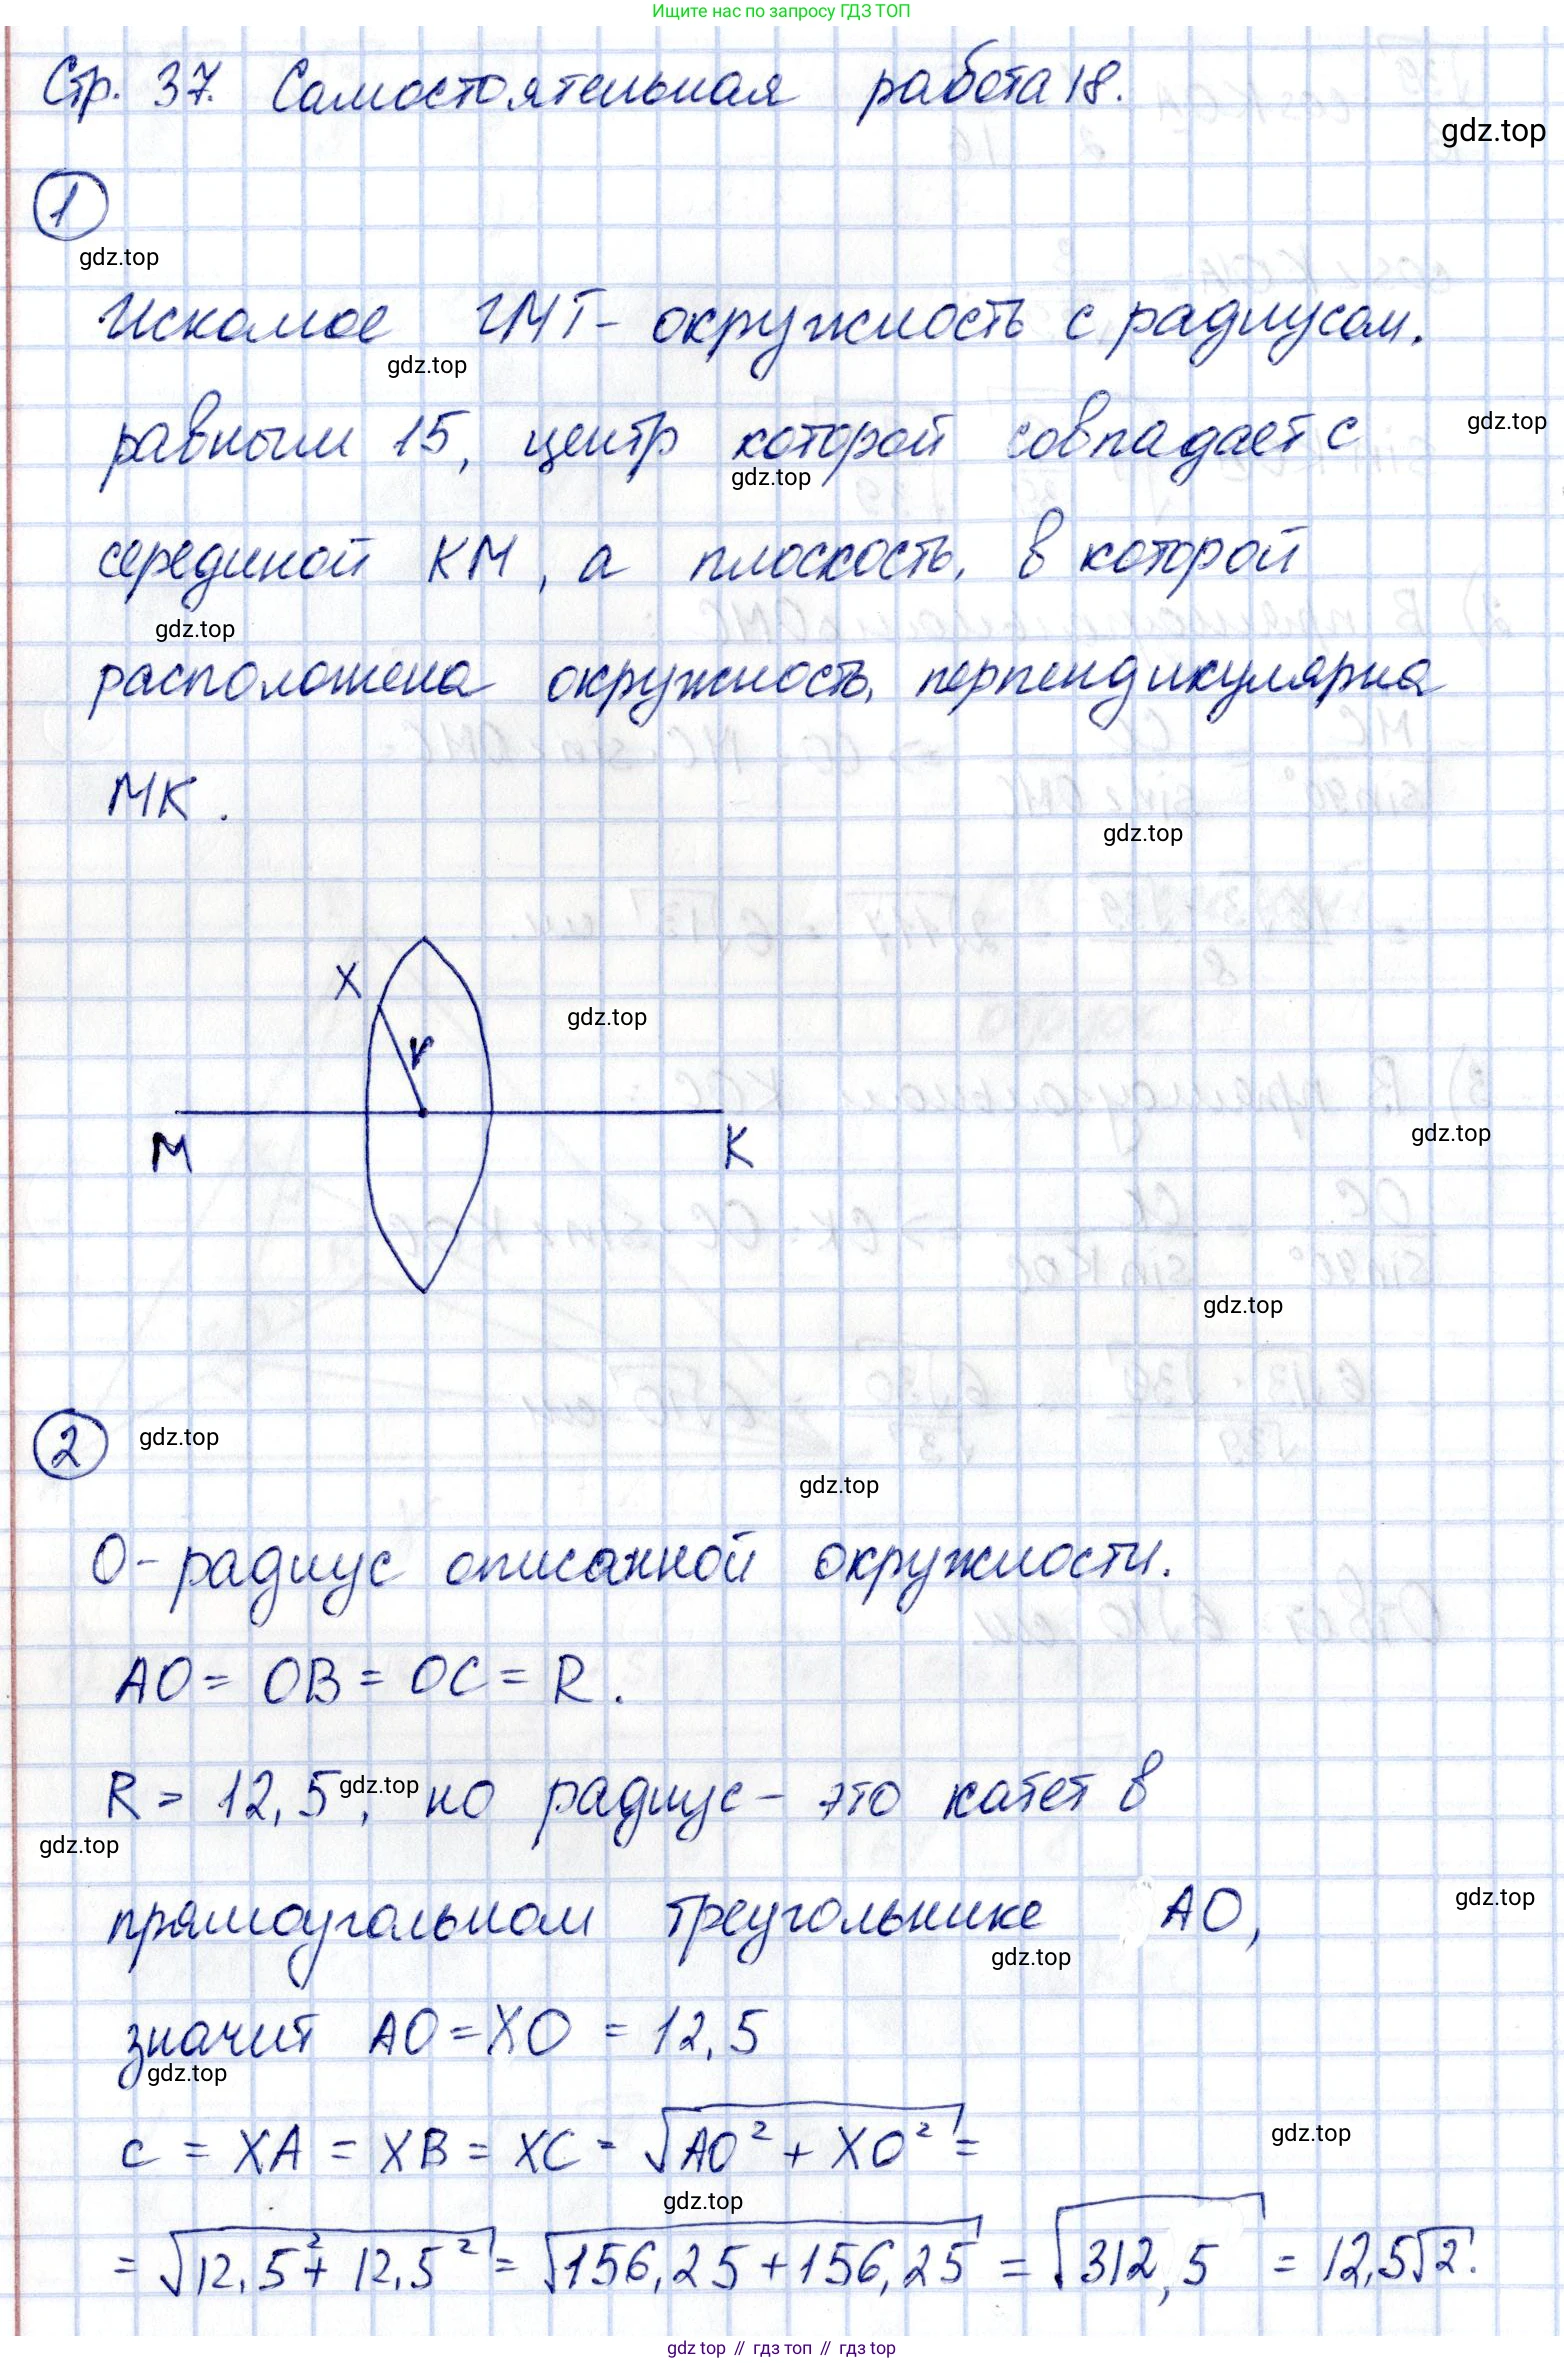 Ищите нас по запросу ГДЗ ТОП
Стр. 37. Самостоятельная работа 18.
gdz.top
1
gdz.top
Искомое ГМТ - окружность с радиусом.
gdz.top
равным 15, центр которой совпадает с
gdz.top
gdz.top
серединой КМ, а плоскость, в которой
gdz.top
расположена окружность, перпендикулярна
МК.
gdz.top
X
gdz.top
r
M
K
gdz.top
gdz.top
2
gdz.top
gdz.top
О - радиус описанной окружности.
AO = OB = OC = R.
R = 12,5, но радиус - это катет в
gdz.top
gdz.top
прямоугольном треугольнике AO,
gdz.top
gdz.top
значит AO = XO = 12,5
gdz.top
c = XA = XB = XC = √(AO² + XO²) =
gdz.top
gdz.top
= √(12,5² + 12,5²) = √(156,25 + 156,25) = √(312,5) = 12,5√2.
gdz top // гдз топ // гдз top